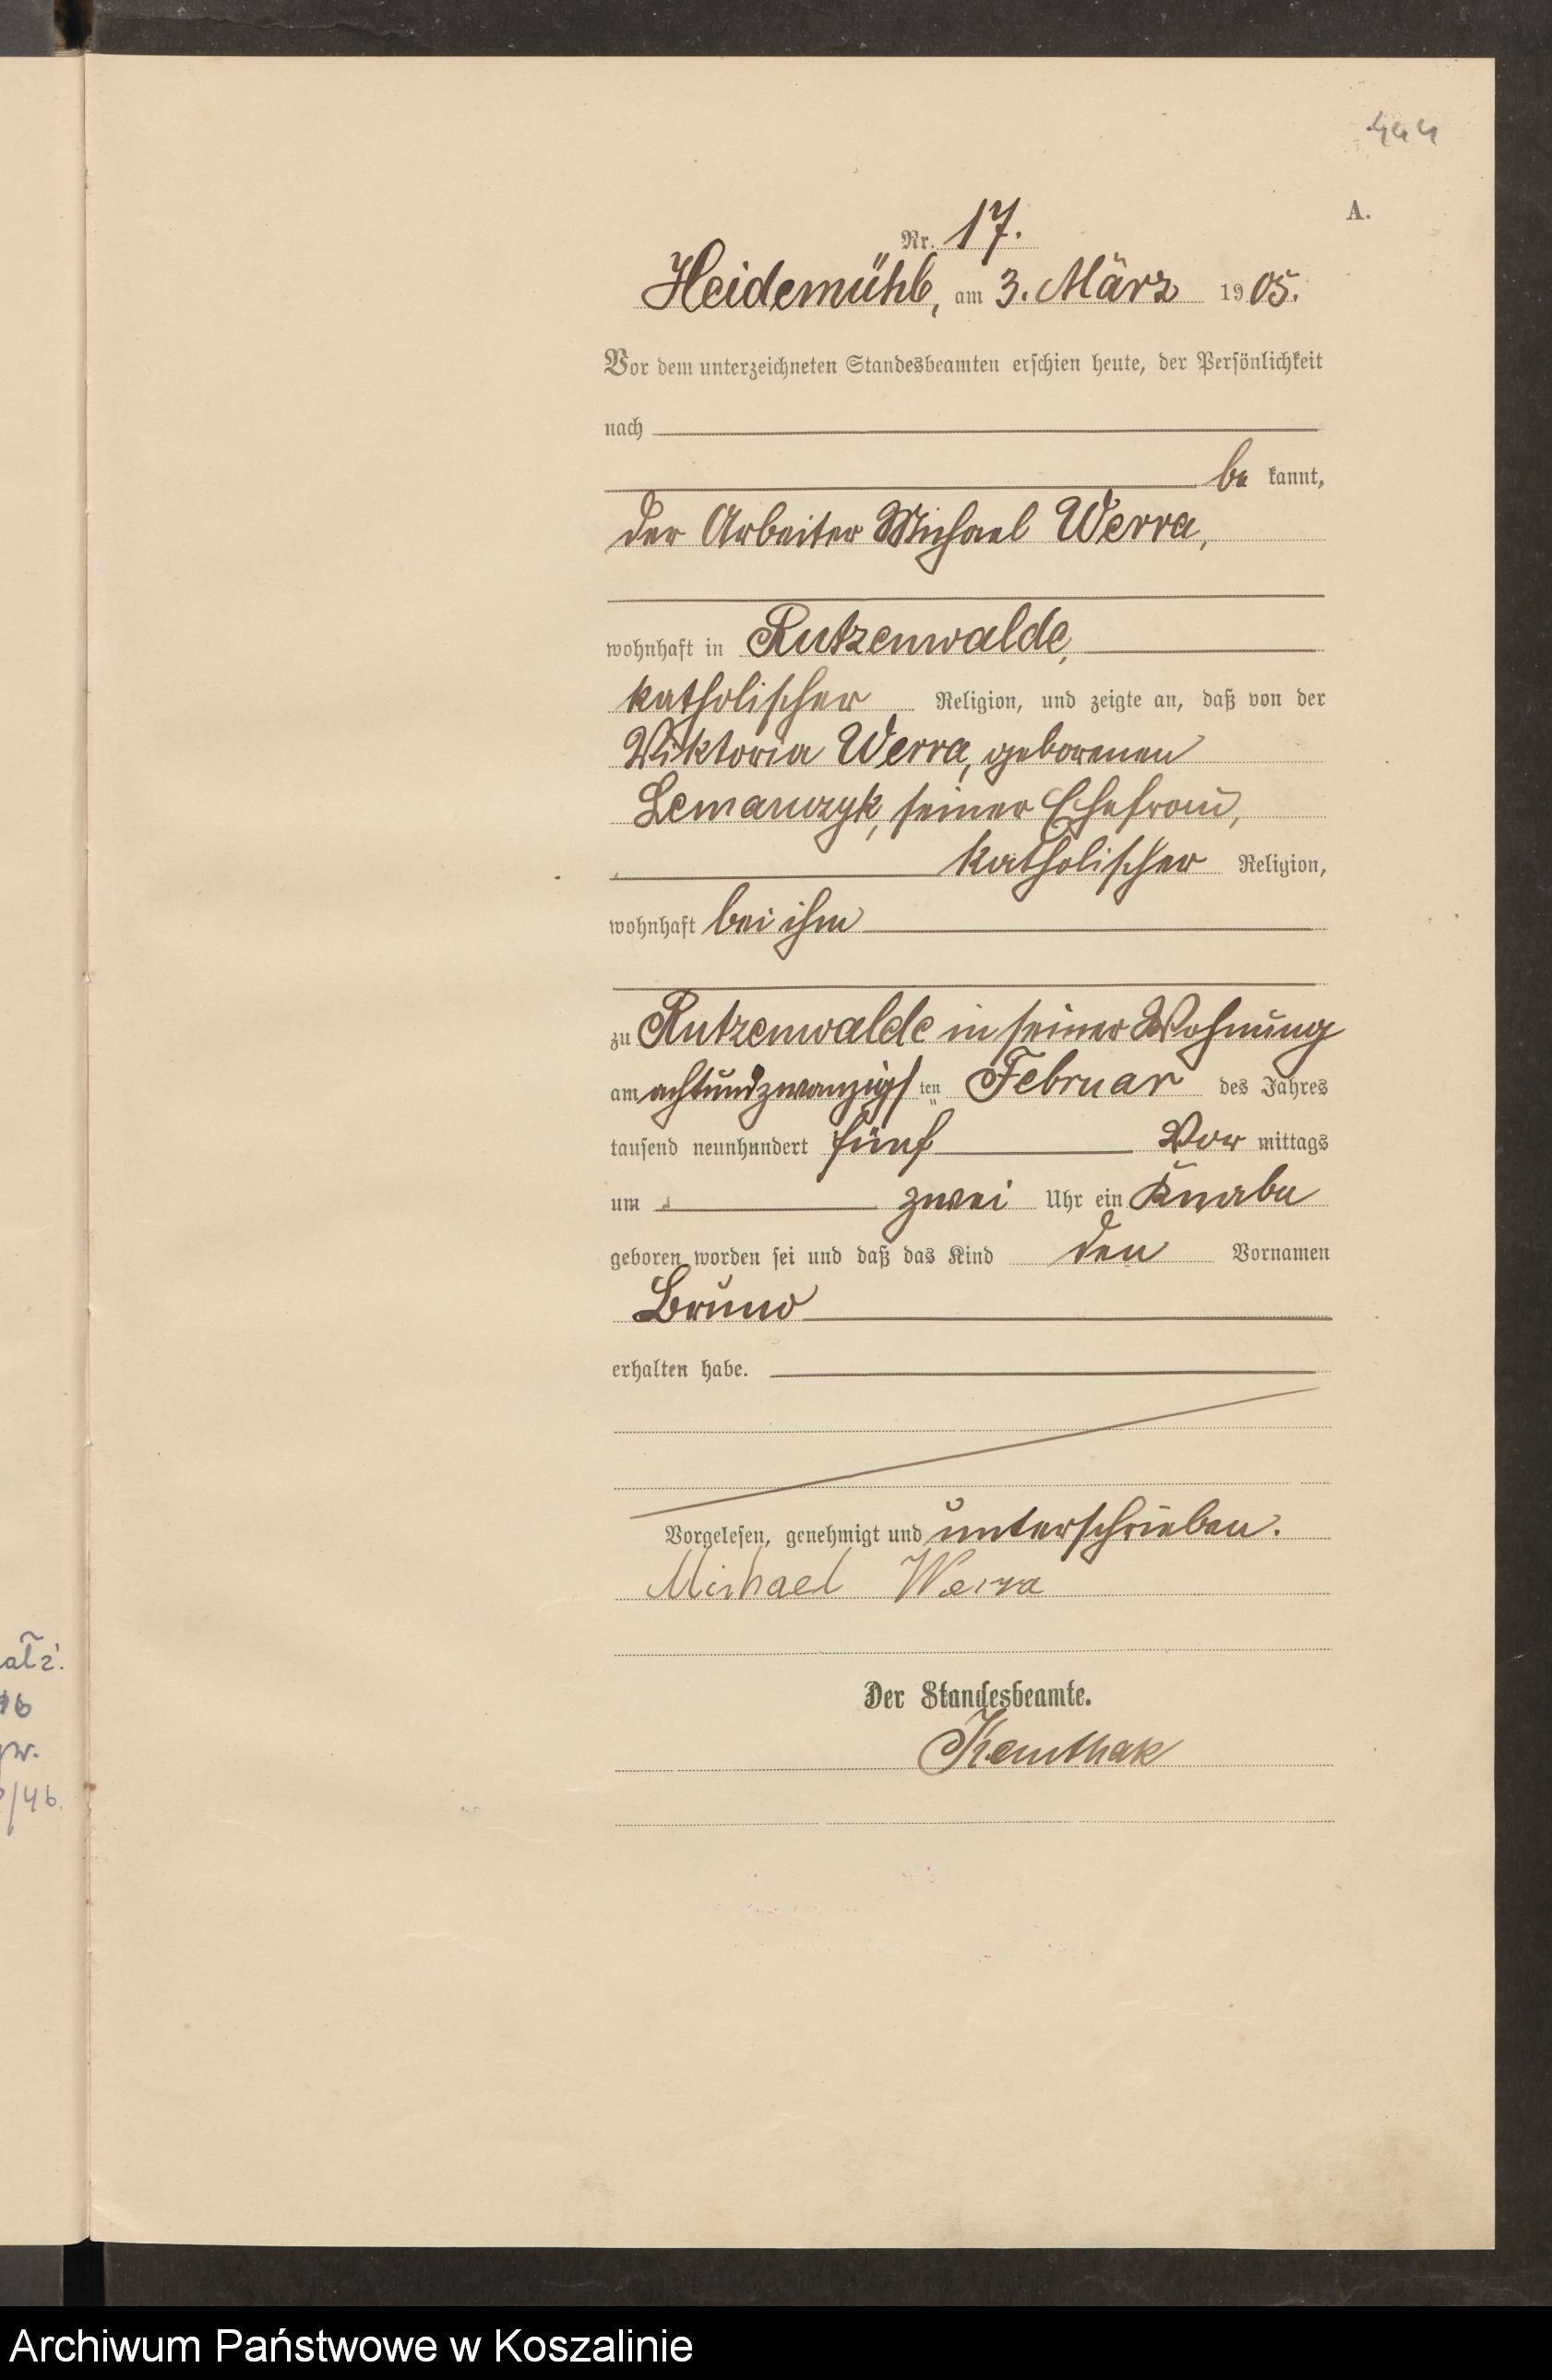 444
A.
Nr. 17.
Heidemühl, am 3. März 1905.
Vor dem unterzeichneten Standesbeamten erschien heute, der Persönlichkeit
nach
be kannt,
der Arbeiter Michael Werra,
wohnhaft in Rutzenwalde,
katholischer Religion, und zeigte an, daß von der
Viktoria Werra, geborenen
Lemanczyk, seiner Ehefrau,
katholischer Religion,
wohnhaft bei ihm
zu Rutzenwalde in seiner Wohnung
am achtundzwanzigs ten Februar des Jahres
tausend neunhundert fünf Vor mittags
um zwei Uhr ein Knabe
geboren worden sei und daß das Kind den Vornamen
Bruno
erhalten habe.
Vorgelesen, genehmigt und unterschrieben.
Michael Werra
Der Standesbeamte.
/46.
Archiwum Państwowe w Koszalinie